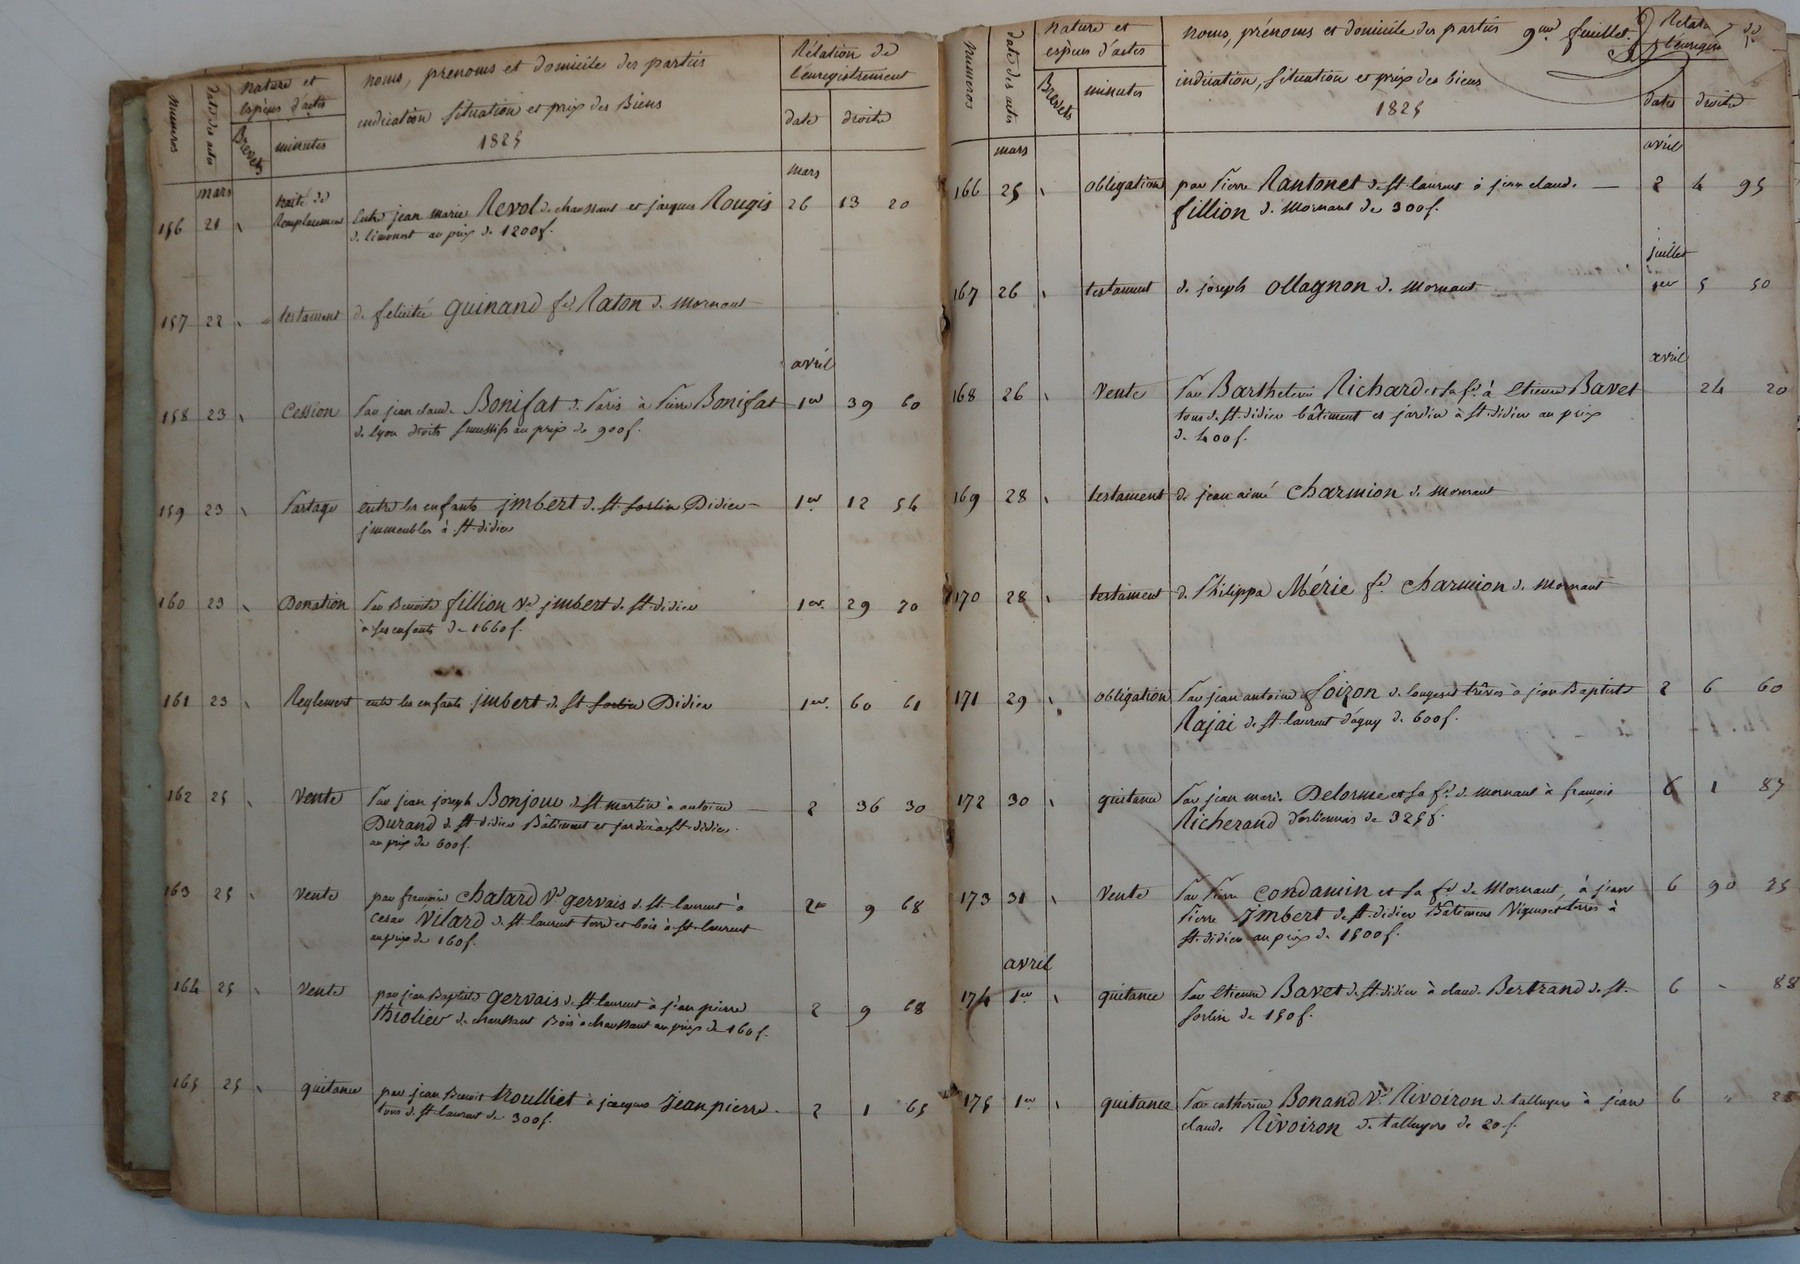 numeros
dates des actes
nature et
espèces d'actes
Brevets
minutes
noms, prénoms et domicile des parties
indication situation et prix des Biens
1825
Rélation de
l'enregistrement
date
droits
mars
mars
156 21 traité de Remplacement entre jean marie Revol de chaussant et jacques Rougis 26 13 20
de limonest au prix de 1200f.
157 22 testament de felicité Guinand fe Raton de Mornant
avril
158 23 Cession Par jean claude Bonifat de Paris à Pierre Bonifat 1er 39 60
de lyon droits successifs au prix de 900f.
159 23 Partage entre les enfants jmbert de St Sorlin Didier 1er 12 54
jmmeubles à St didier
160 23 Donation Par Benoite fillion Ve jmbert de St didier 1er 29 70
à ses enfants de 1660f.
161 23 Reglement entre les enfants jmbert de St Sorlin Didier 1er 60 61
162 25 Vente Par jean joseph Bonjour de St martin à antoine 2 36 30
Durand de St didier Bâtiment et jardin à St didier
au prix de 600f.
163 25 Vente par françoise Chatard Ve gervais de St laurent à
Cesar Vilard de St laurent terre et bois à St laurent 2 9 68
au prix de 160f.
164 25 Vente par jean Baptiste gervais de St laurent à jean pierre
thiolier de chaussant Bois à chaussant au prix de 160f. 2 9 68
165 25 quitance par jean Benoit trouillet à jacques Jeanpierre 2 1 65
tous de St laurent de 300f.
numeros
dates des actes
nature et
espèces d'actes
Brevets
minutes
noms, prénoms et domicile des parties 9me feuillet
indication, situation et prix des biens
1825
dates
droits
mars
avril
166 25 obligation par Pierre Rantonet de St laurent à jean claude 2 4 95
fillion de Mornant de 300f.
juillet
167 26 testament de joseph Ollagnon de Mornant 1er 5 50
avril
168 26 Vente Par Barthelemi Richard et sa fe à Etienne Bavet 24 20
tous de St didier bâtiment et jardin à St didier au prix
de 400f.
169 28 testament de jean aimé Charmion de Mornant
170 28 testament de Philippa Mérie fe Charmion de Mornant
171 29 obligation Par jean antoine foizon de longes et trêves à jean Baptiste 2 6 60
Rajai de St laurent d'agny de 600f.
172 30 quitance Par jean marie Delorme et sa fe de Mornant à françois 6 1 87
Richerand d'orliennas de 325f.
173 31 Vente Par Pierre Condamin et sa fe de Mornant, à jean 6 90 75
Pierre Jmbert de St didier Bâtiments Vignes et terres à
St didier au prix de 1500f.
avril
174 1er quitance Par Etienne Bavet de St didier à claude Bertrand de St 6 - 88
Sorlin de 150f.
175 1er quitance Par catherine Bonand Ve Rivoiron de talluyers à jean 6 "
claude Rivoiron de talluyers de 20f.